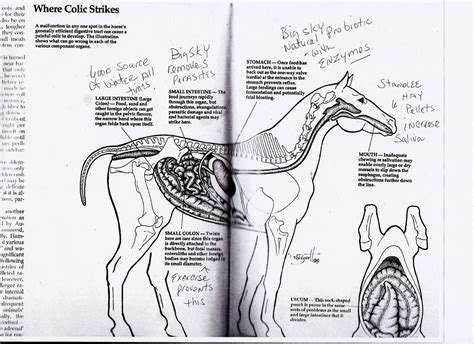 Where Colic Strikes
A malfunction in any one spot in the horse's
generally efficient digestive tract can cause a
painful colic to develop. The illustration
shows what can go wrong in each of the
various component organs.
Good source
of water all
times
Big sky
removes
Parasites
Big sky Probiotic
Natural
with
ENZYMES
STOMACH — Once foodstuff has
arrived here, it is unable to
back out as the one-way valve
(cardia) at the entrance to the
stomach prevents reflux.
Large feedings can cause
fermentation and potentially
fatal bloating.
Standlee
Hay
Pellets
INCREASE
Saliva
LARGE INTESTINE (Large
Colon) — Food, sand and
other foreign objects can get
caught in the pelvic flexure,
the narrow bend where this
organ folds back upon itself.
SMALL INTESTINE — The
feedstuff passes rapidly
through this organ, but
obstructions, strangulations,
parasitic damage and viral
and bacterial agents may
strike here.
MOUTH — Inadequate
chewing or salivation may
enable overly large or dry
morsels to slip down the
esophagus, creating
obstructions further down
the line.
SMALL COLON — Twists
here are rare since this organ
is directly attached to the
backbone, but fecal masses,
enteroliths and other foreign
bodies may become lodged in
its small diameter.
Exercise
prevents
this
CECUM — This sock-shaped
pouch is prone to the same
sorts of problems as the small
and large intestines that it
divides.